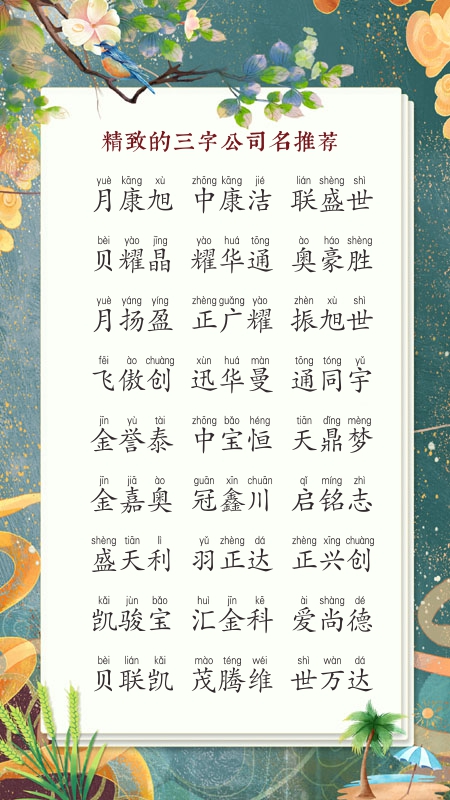 精致的三字公司名推荐
yuè kāng xù zhōng kāng jié lián shèng shì
月康旭 中康洁 联盛世
bèi yào jīng yào huá tōng ào háo shèng
贝耀晶 耀华通 奥豪胜
yuè yáng yíng zhèng guǎng yào zhèn xù shì
月扬盈 正广耀 振旭世
fēi ào chuàng xùn huá màn tōng tóng yǔ
飞傲创 迅华曼 通同宇
jīn yù tài zhōng bǎo héng tiān dǐng mèng
金誉泰 中宝恒 天鼎梦
jīn jiā ào guān xīn chuān qǐ míng zhì
金嘉奥 冠鑫川 启铭志
shèng tiān lì yǔ zhèng dá zhèng xīng chuàng
盛天利 羽正达 正兴创
kǎi jùn bǎo huì jīn kē ài shàng dé
凯骏宝 汇金科 爱尚德
bèi lián kǎi mào téng wéi shì wàn dá
贝联凯 茂腾维 世万达